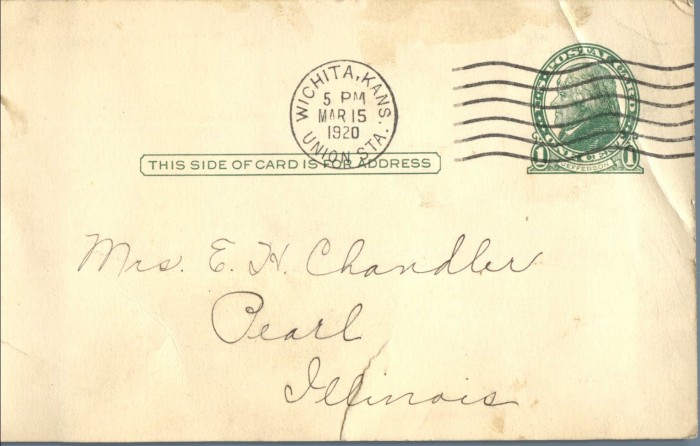 WICHITA, KANS.
5 PM
MAR 15
1920
UNION STA.
U.S. POSTAL CARD
1 1
JEFFERSON
THIS SIDE OF CARD IS FOR ADDRESS
Mrs. E. H. Chandler
Pearl
Illinois